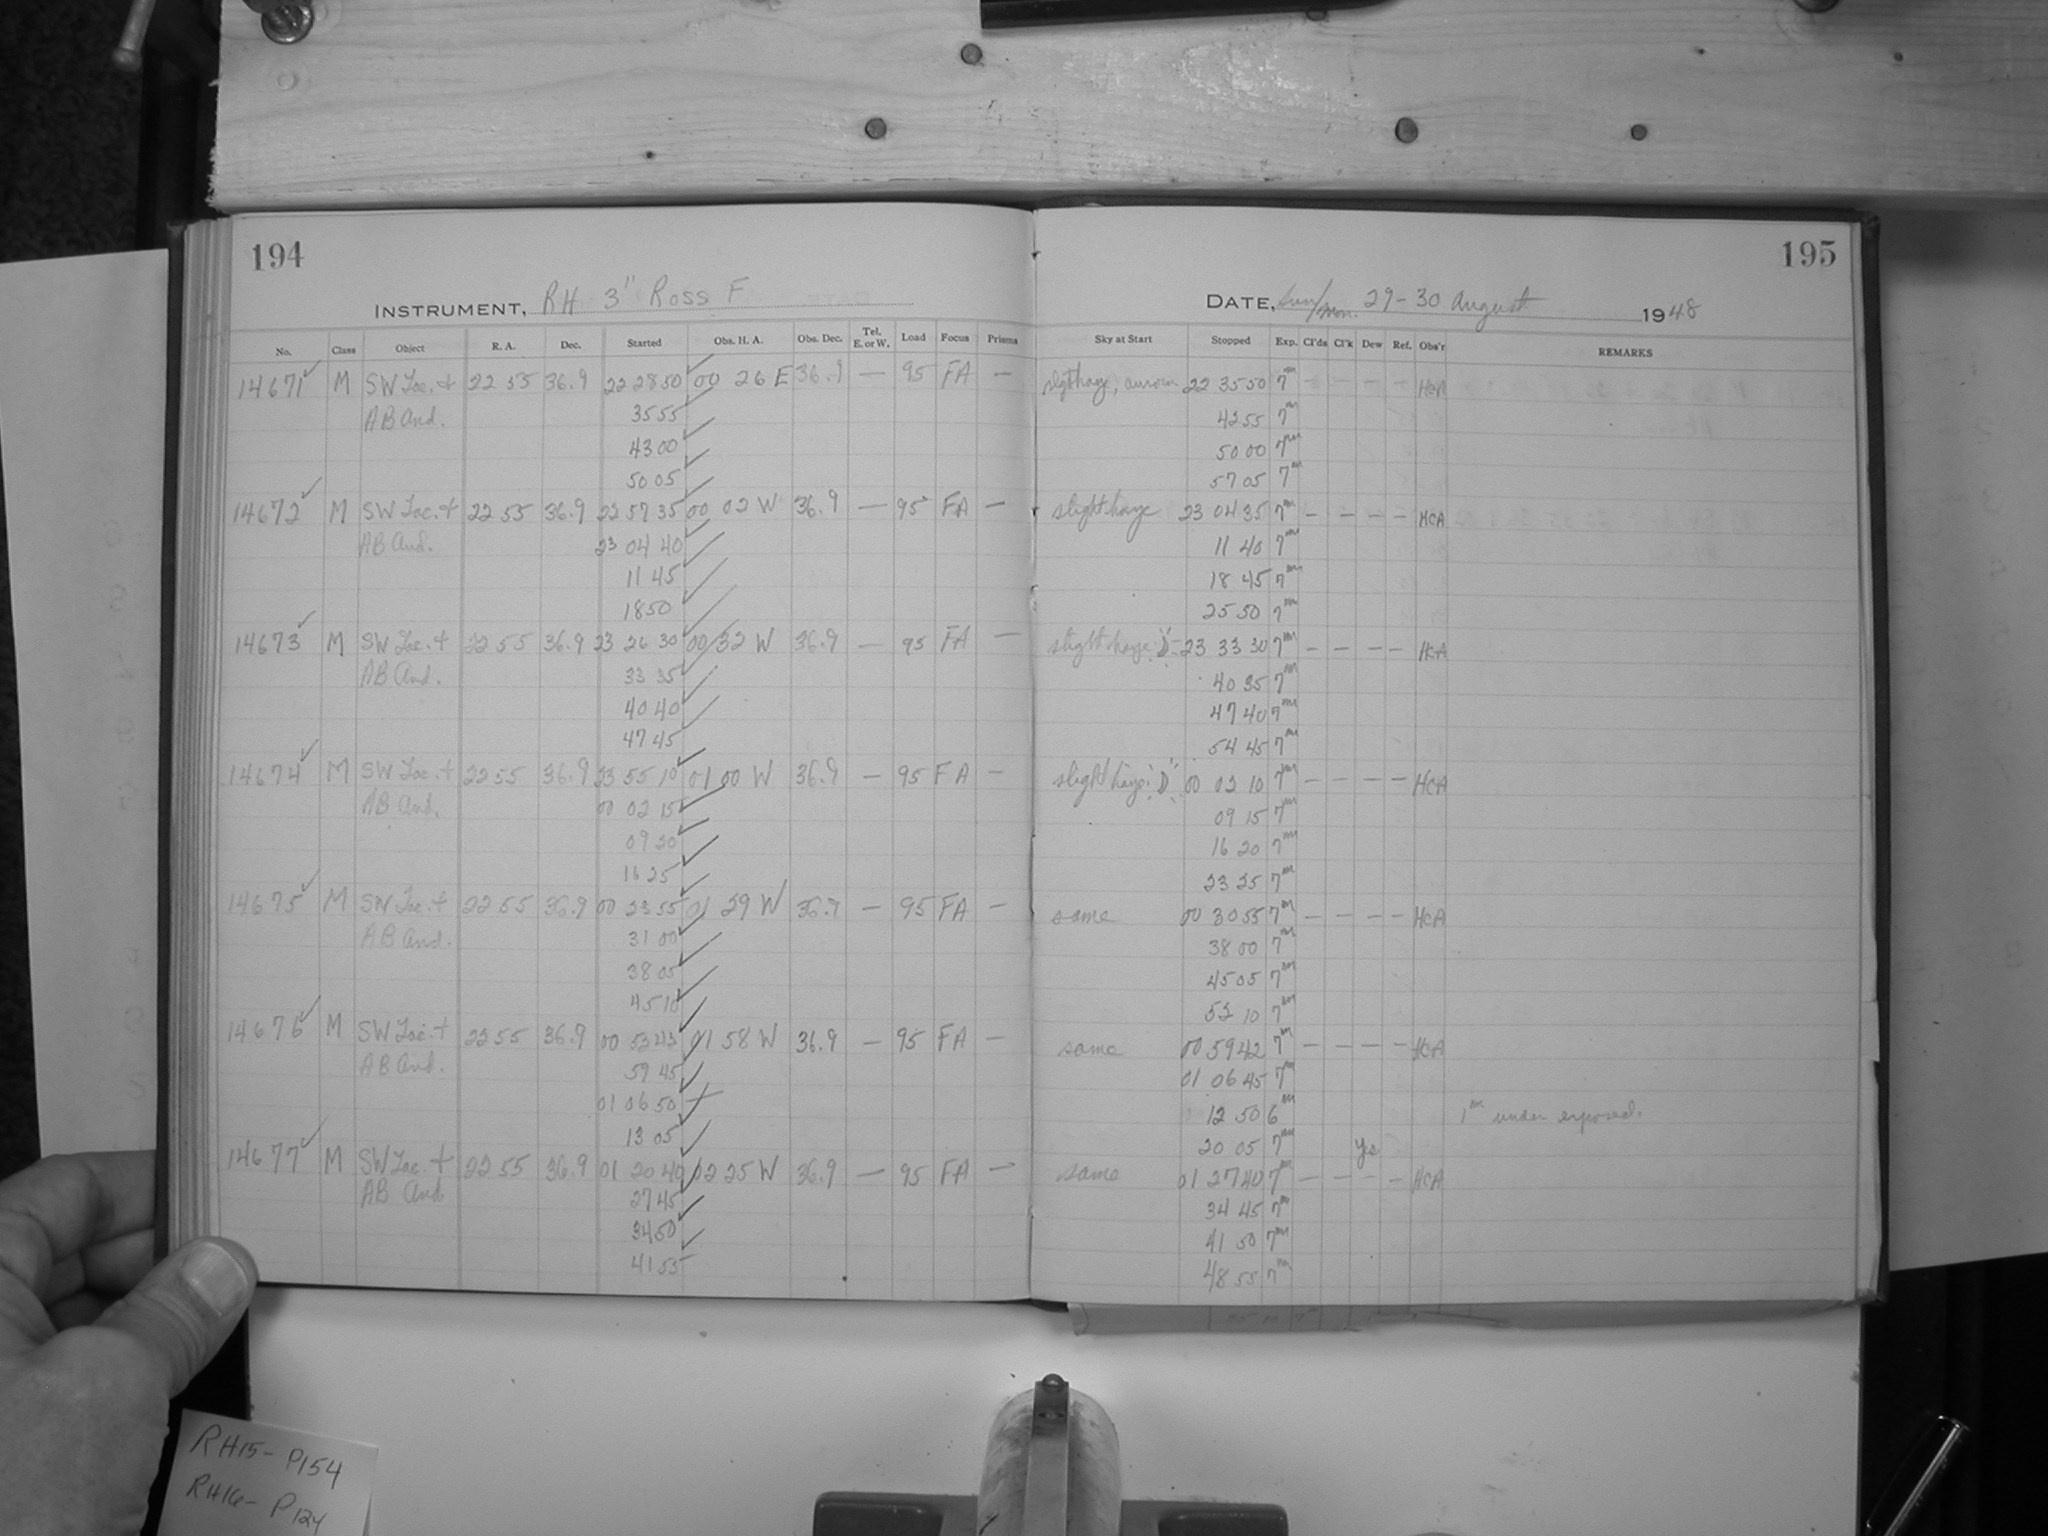 194
195
INSTRUMENT, RH 3" Ross F
DATE, Sun/Mon. 29-30 August 1948
No. Class Object R. A. Dec. Started Obs. H. A. Obs. Dec. Tel. E. or W. Load Focus Prisms Sky at Start Stopped Exp. Cl'ds Cl'k Dew Ref. Obs'r REMARKS
14671 ✓ M SW Lac. + 22 55 36.9 22 28 50 ✓ 00 26 E 36.9 — 95 FA — slgt haze, aurora 22 35 50 7m — — — — HCA
AB And. 35 55 ✓ 42 55 7m
43 00 ✓ 50 00 7m
50 05 ✓ 57 05 7m
14672 ✓ M SW Lac. + 22 55 36.9 22 57 35 ✓ 00 02 W 36.9 — 95 FA — slight haze 23 04 35 7m — — — — HCA
AB And. 23 04 40 ✓ 11 40 7m
11 45 ✓ 18 45 7m
18 50 ✓ 25 50 7m
14673 ✓ M SW Lac. + 22 55 36.9 23 26 30 ✓ 00 32 W 36.9 — 95 FA — slight haze "D" 23 33 30 7m — — — — HCA
AB And. 33 35 ✓ 40 35 7m
40 40 ✓ 47 40 7m
47 45 ✓ 54 45 7m
14674 ✓ M SW Lac. + 22 55 36.9 23 55 10 ✓ 01 00 W 36.9 — 95 FA — slight haze "D" 00 02 10 7m — — — — HCA
AB And. 00 02 15 ✓ 09 15 7m
09 20 ✓ 16 20 7m
16 25 ✓ 23 25 7m
14675 ✓ M SW Lac. + 22 55 36.9 00 23 55 ✓ 01 29 W 36.9 — 95 FA — same 00 30 55 7m — — — — HCA
AB And. 31 00 ✓ 38 00 7m
38 05 ✓ 45 05 7m
45 10 ✓ 52 10 7m
14676 ✓ M SW Lac. + 22 55 36.9 00 ✓ 01 58 W 36.9 — 95 FA — same 00 59 42 7m — — — — HCA
AB And. 59 45 ✓ 01 06 45 7m
01 06 50 ✓ 12 50 6m 1m under exposed.
13 05 ✓ 20 05 7m Yes
14677 ✓ M SW Lac. + 22 55 36.9 01 20 40 ✓ 02 25 W 36.9 — 95 FA — same 01 27 40 7m — — — — HCA
AB And 27 45 ✓ 34 45 7m
34 50 ✓ 41 50 7m
41 55 ✓ 48 55 7m
RH15- P154
RH16- P124